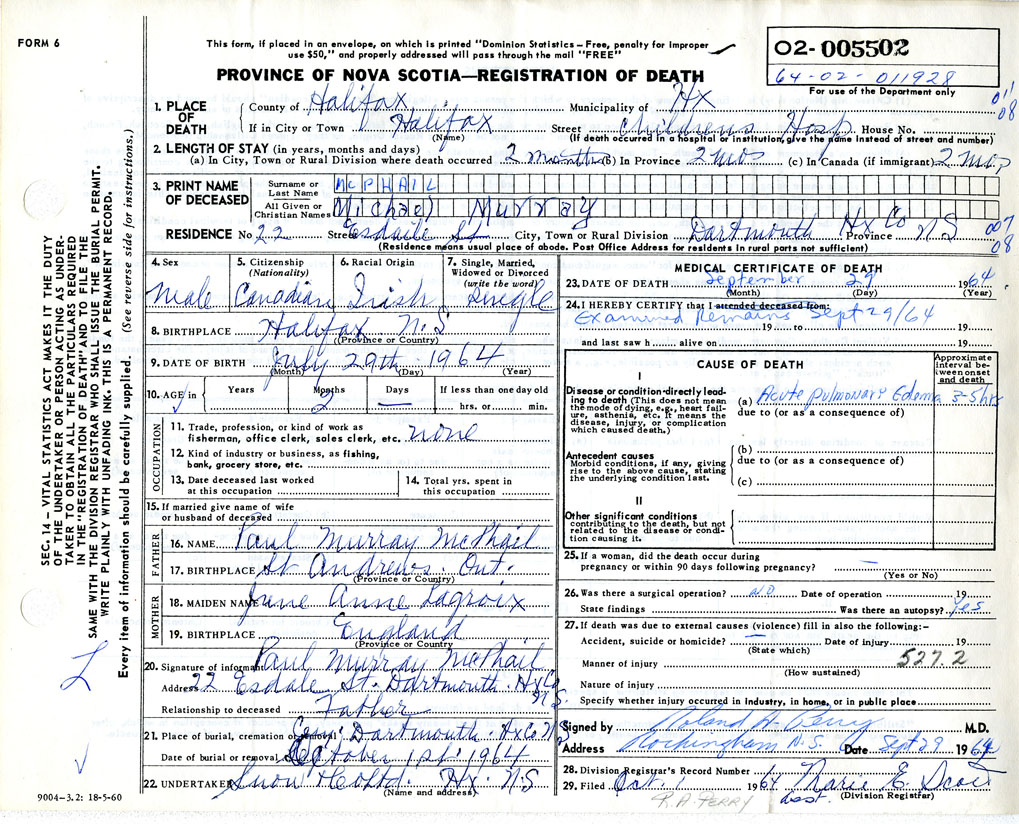 FORM 6
This form, if placed in an envelope, on which is printed "Dominion Statistics – Free, penalty for improper
use $50," and properly addressed will pass through the mail "FREE"
02-005502
64-02-011928
For use of the Department only
PROVINCE OF NOVA SCOTIA—REGISTRATION OF DEATH
011
08
1. PLACE OF DEATH County of Halifax Municipality of Hx
If in City or Town Halifax Street Childrens Hosp House No.
(Name) (If death occurred in a hospital or institution, give the name instead of street and number)
2. LENGTH OF STAY (in years, months and days)
(a) In City, Town or Rural Division where death occurred 2 months (b) In Province 2 mos (c) In Canada (if immigrant) 2 mos
3. PRINT NAME OF DECEASED Surname or Last Name McPHAIL
All Given or Christian Names Michael Murray
RESIDENCE No 22 Street Esdaile St City, Town or Rural Division Dartmouth Hx Co Province N S
007
08
(Residence means usual place of abode. Post Office Address for residents in rural parts not sufficient)
4. Sex 5. Citizenship (Nationality) 6. Racial Origin 7. Single, Married, Widowed or Divorced (write the word)
Male Canadian Irish Single
8. BIRTHPLACE Halifax N.S
(Province or Country)
9. DATE OF BIRTH July 29th 1964
(Month) (Day) (Year)
10. AGE in Years Months Days If less than one day old
2 — hrs. or min.
OCCUPATION
11. Trade, profession, or kind of work as
fisherman, office clerk, sales clerk, etc. none
12. Kind of industry or business, as fishing,
bank, grocery store, etc.
13. Date deceased last worked
at this occupation
14. Total yrs. spent in
this occupation
15. If married give name of wife
or husband of deceased
FATHER
16. NAME Paul Murray McPhail
17. BIRTHPLACE St Andrews Ont.
(Province or Country)
MOTHER
18. MAIDEN NAME June Anne Lagroix
19. BIRTHPLACE England
(Province or Country)
20. Signature of informant Paul Murray McPhail
Address 22 Esdale St. Dartmouth Hx Co
N S.
Relationship to deceased Father
21. Place of burial, cremation or removal Dartmouth Hx Co N S
Date of burial or removal October 1st 1964
22. UNDERTAKER Snow Hx N S
(Name and address)
MEDICAL CERTIFICATE OF DEATH
23. DATE OF DEATH September 29 1964
(Month) (Day) (Year)
24. I HEREBY CERTIFY that I attended deceased from:
Examined Remains Sept 29/64
19 to 19
and last saw h alive on 19
CAUSE OF DEATH
Approximate interval between onset and death
I
Disease or condition directly leading to death (This does not mean the mode of dying, e.g., heart failure, asthenia, etc. It means the disease, injury, or complication which caused death.)
(a) Acute pulmonary Edema 3-5 hrs
due to (or as a consequence of)
Antecedent causes
Morbid conditions, if any, giving rise to the above cause, stating the underlying condition last.
(b)
due to (or as a consequence of)
(c)
II
Other significant conditions
contributing to the death, but not related to the disease or condition causing it.
25. If a woman, did the death occur during
pregnancy or within 90 days following pregnancy? —
(Yes or No)
26. Was there a surgical operation? no Date of operation 19
State findings Was there an autopsy? Yes
27. If death was due to external causes (violence) fill in also the following:–
Accident, suicide or homicide? — Date of injury 19
(State which)
527.2
Manner of injury
(How sustained)
Nature of injury
Specify whether injury occurred in industry, in home, or in public place
Signed by Roland A. Perry M.D.
Address Rockingham N.S. Date Sept 29 1964
28. Division Registrar's Record Number
29. Filed Oct. 1 1964 Marie E. Scott
asst. (Division Registrar)
R.A. PERRY
SEC. 14 – VITAL STATISTICS ACT MAKES IT THE DUTY
OF THE UNDERTAKER OR PERSON ACTING AS UNDER-
TAKER TO OBTAIN ALL THE PARTICULARS REQUIRED
IN THE "REGISTRATION OF DEATH" AND TO FILE THE
SAME WITH THE DIVISION REGISTRAR WHO SHALL ISSUE THE BURIAL PERMIT.
WRITE PLAINLY WITH UNFADING INK. THIS IS A PERMANENT RECORD.
Every item of information should be carefully supplied. (See reverse side for instructions.)
9004-3.2: 18-5-60